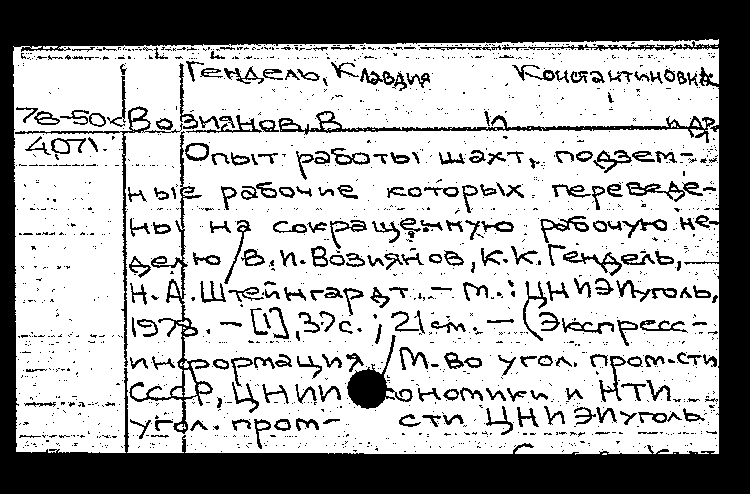 Гендель, Клавдия Константиновна
78-50к Возиянов, В И и др.
4071. Опыт работы шахт, подзем-
ные рабочие которых переведе-
ны на сокращенную рабочую не-
делю / В.И. Возиянов, К.К. Гендель,
Н.А. Штейнгардт. - М.: ЦНИЭИуголь,
1978. - [1], 37с.; 21см. - (Экспресс-
информация / М-во угол. пром-сти
СССР, ЦНИИ экономики и НТИ
угол. пром-сти ЦНИЭИуголь